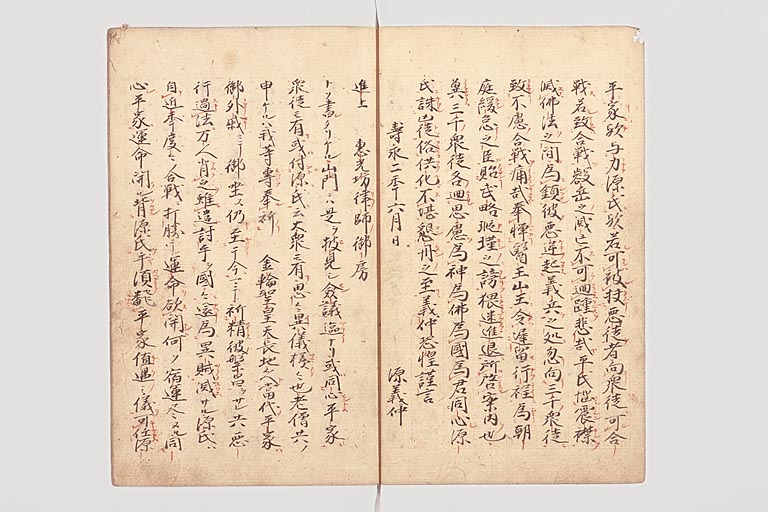 平家欤与力源氏欤若可被扶悪徒者向衆徒可合
戦若致合戦叡岳之滅亡不可廻踵悲哉平氏悩震襟
滅佛法之間為鎮彼悪逆起義兵之処忽向三千衆徒
致不慮合戦痛哉奉憚醫王山王令遅留行程為朝
庭緩怠之臣貽武略瑕瑾之謗猥迷進退所啓案内也
冀三千衆徒各廻思慮為神為佛為國為君同心源
氏誅凶徒俗供化不堪懇丹之至義仲恐惶謹言
壽永二年六月日 源義仲
進上 恵光坊律師御房
トソ書タリケル山門ニハ是ヲ披見シ僉議
衆徒モ有或付源氏云大衆モ有思々異儀様々也老僧共ノ
申ケルハ我等専奉祈 金輪聖皇天長地久当代平家
御外戚ニテ御坐ス仍至于今ニ祈精彼繁昌サレ共悪
行過法万人背之雖遣討手ヲ國々還為異賊滅サル源氏ハ
自近年度々ノ合戦ニ打勝テ運命欲開何ノ宿運尽ヌル同
心平家運命開ル背源氏乎須翻平家値遇之儀可任源